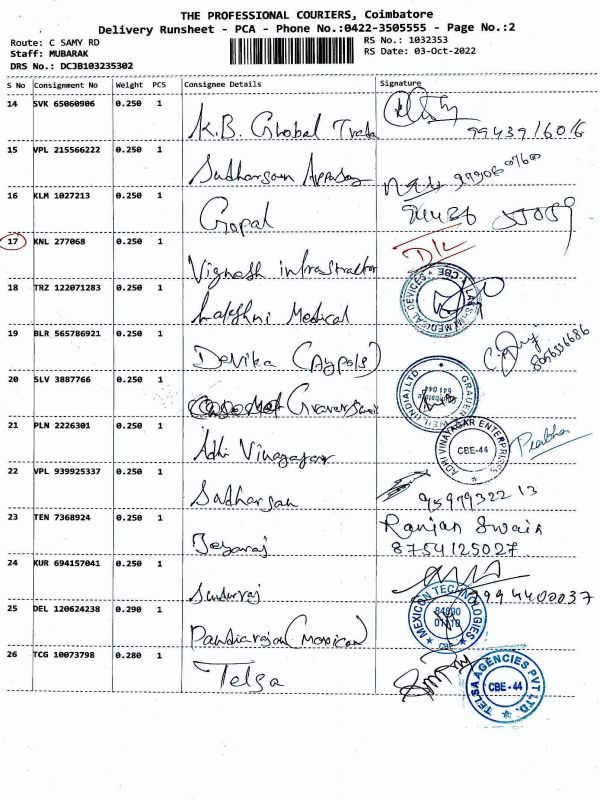 THE PROFESSIONAL COURIERS, Coimbatore
Delivery Runsheet - PCA - Phone No.:0422-3505555 - Page No.:2
Route: C SAMY RD
RS No.: 1032353
Staff: MUBARAK
RS Date: 03-Oct-2022
DRS No.: DCJB103235302
S No Consignment No Weight PCS Consignee Details Signature
14 SVK 65060906 0.250 1 K.B. Global
15 VPL 215566222 0.250 1 Sudharsan
16 KLM 1027213 0.250 1 Gopal
17 KNL 277068 0.250 1 Vignesh D/L
18 TRZ 122071283 0.250 1 Lakshmi Medical
19 BLR 565786921 0.250 1 Devika 8056556686
20 SLV 3887766 0.250 1
21 PLN 2226301 0.250 1 Adhi Vinayagar ADHI VINAYAGAR ENTERPRIZES CBE-44 Prabha
22 VPL 939925337 0.250 1 Sudharsan 9597932213
23 TEN 7368924 0.250 1 Ranjan Swain
8754125027
24 KUR 694157041 0.250 1 9994400037
25 DEL 120624238 0.290 1 Pandiarajan (Mexican) MEXICON TECHNOLOGIES CBE
26 TCG 10073798 0.280 1 Telsa TELSA AGENCIES PVT LTD. CBE-44